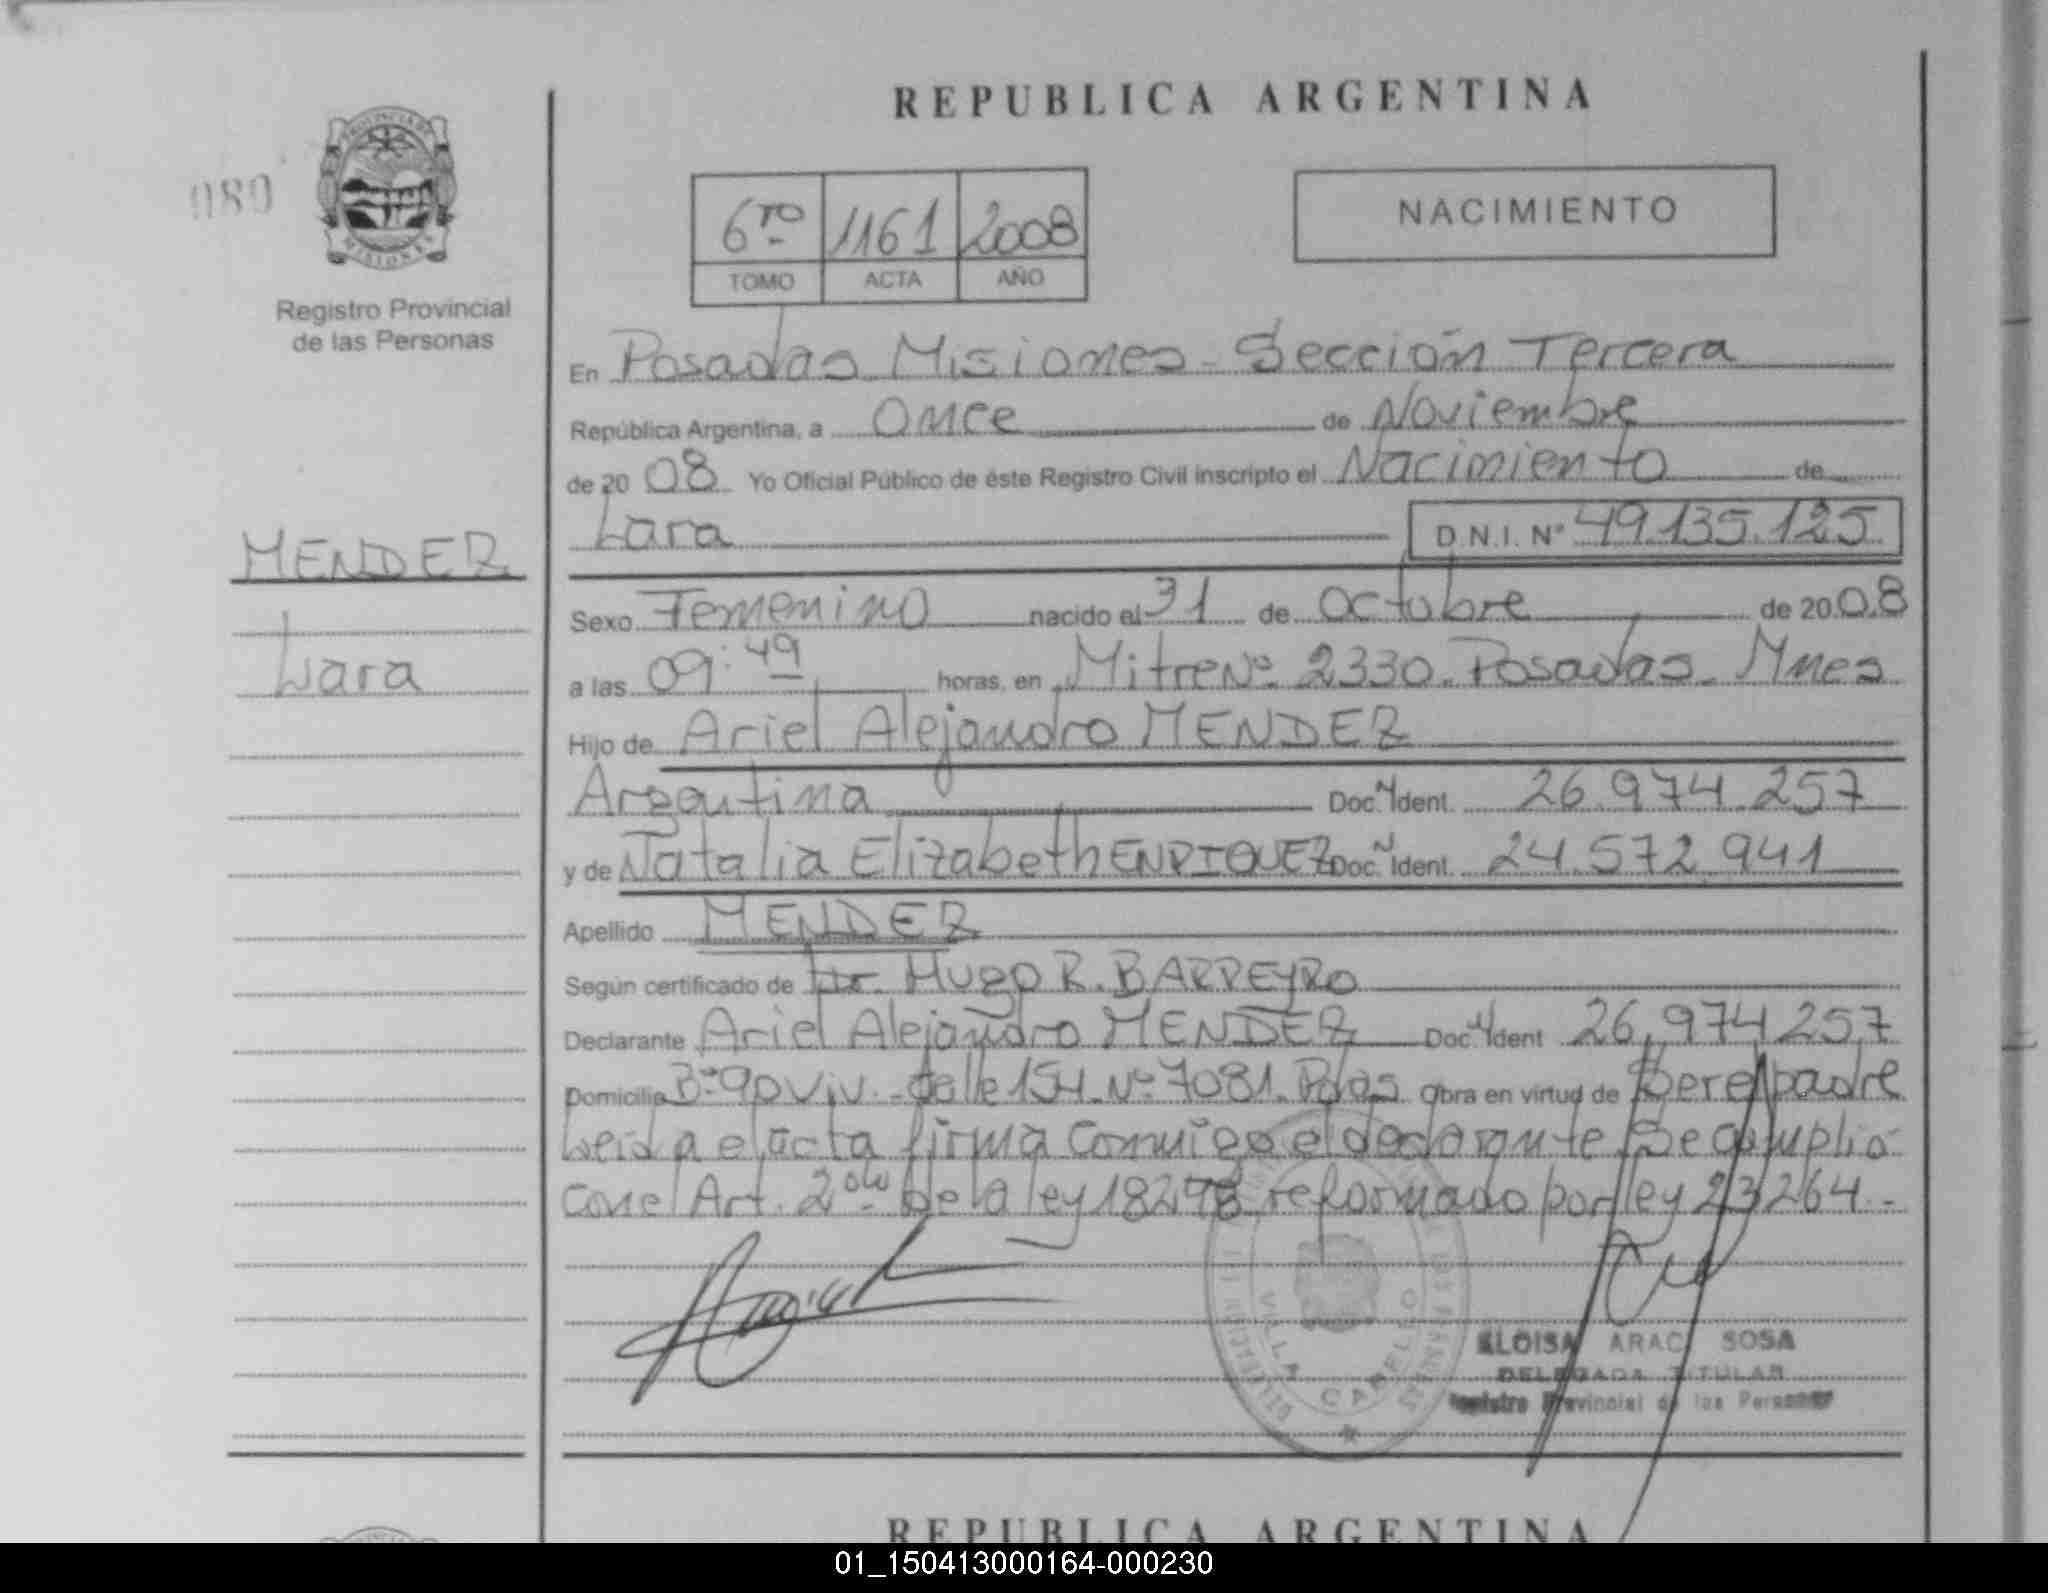 REPUBLICA ARGENTINA
080
PROVINCIA DE
MISIONES
Registro Provincial
de las Personas
6TO 1161 2008
TOMO ACTA AÑO
NACIMIENTO
En Posadas Misiones - Sección Tercera
República Argentina, a Once de Noviembre
de 2008 Yo Oficial Público de éste Registro Civil inscripto el Nacimiento de
Lara D.N.I. Nº 49.135.125
MENDEZ
Lara
Sexo Femenino nacido el 31 de octubre de 2008
a las 09:49 horas, en Mitre Nº 2330. Posadas. Mnes
Hijo de Ariel Alejandro MENDEZ
Argentina Doc. Ident. 26.974.257
y de Natalia Elizabeth ENRIQUEZ Doc. Ident. 24.572.941
Apellido MENDEZ
Según certificado de Dr. Hugo R. BARREYRO
Declarante Ariel Alejandro MENDEZ Doc. Ident 26.974.257
Domicilio Bº 90 Viv. Calle 154 Nº 7081. Pdas Obra en virtud de Ser el padre
Leida el acta firma conmigo el declarante Se cumplió
con el Art. 2do de la ley 18248 reformado por ley 23264.-
VILLA CABELLO
ELOISA ARACI SOSA
DELEGADA TITULAR
Registro Provincial de las Personas
REPUBLICA ARGENTINA
01_150413000164-000230